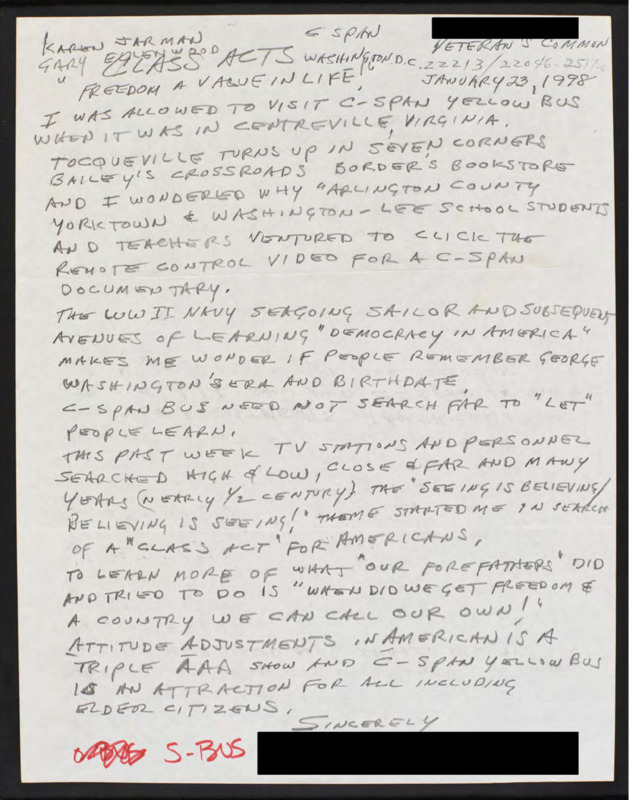 KAREN JARMAN C SPAN VETERAN'S COMMON
GARY CLASS ACTS WASHINGTON D.C. 22213/22046-2511
"FREEDOM A VALUE IN LIFE, JANUARY 23, 1998
I WAS ALLOWED TO VISIT C-SPAN YELLOW BUS
WHEN IT WAS IN CENTREVILLE, VIRGINIA.
TOCQUEVILLE TURNS UP IN SEVEN CORNERS
BAILEY'S CROSSROADS BORDER'S BOOKSTORE
AND I WONDERED WHY "ARLINGTON COUNTY
YORKTOWN & WASHINGTON-LEE SCHOOL STUDENTS
AND TEACHERS VENTURED TO CLICK THE
REMOTE CONTROL VIDEO FOR A C-SPAN
DOCUMENTARY.
THE WW II NAVY SEAGOING SAILOR AND SUBSEQUENT
AVENUES OF LEARNING "DEMOCRACY IN AMERICA"
MAKES ME WONDER IF PEOPLE REMEMBER GEORGE
WASHINGTON'S ERA AND BIRTHDATE.
C-SPAN BUS NEED NOT SEARCH FAR TO "LET"
PEOPLE LEARN.
THIS PAST WEEK TV STATIONS AND PERSONNEL
SEARCHED HIGH & LOW, CLOSE & FAR AND MANY
YEARS (NEARLY 1/2 CENTURY) THE "SEEING IS BELIEVING/
BELIEVING IS SEEING!" THEME STARTED ME IN SEARCH
OF A "CLASS ACT" FOR AMERICANS.
TO LEARN MORE OF WHAT "OUR FOREFATHERS" DID
AND TRIED TO DO IS "WHEN DID WE GET FREEDOM &
A COUNTRY WE CAN CALL OUR OWN!"
ATTITUDE ADJUSTMENTS IN AMERICAN IS A
TRIPLE AAA SHOW AND C-SPAN YELLOW BUS
IS AN ATTRACTION FOR ALL INCLUDING
ELDER CITIZENS.
SINCERELY
S-BUS